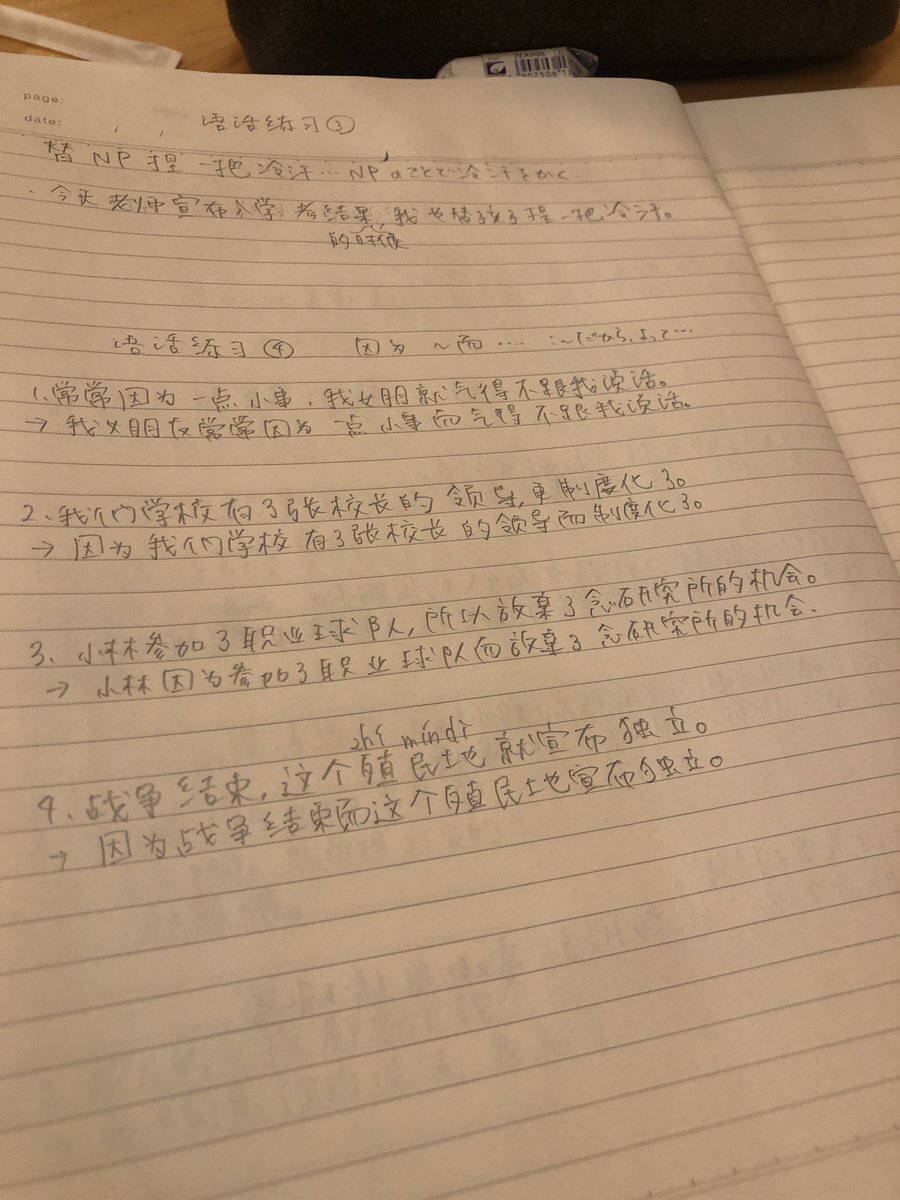 page:
date: / / 语法练习③
替 NP 捏一把冷汗… NPのことで冷汗をかく
·今天老师宣布入学考结果,我也替孩子捏一把冷汗。
的时候
语法练习④ 因为~而…. :~だから、よって…
1.常常因为一点小事,我女朋就气得不跟我谈话。
→ 我女朋友常常因为一点小事而气得不跟我谈话。
2、我们学校有了张校长的领导,更制度化了。
→ 因为我们学校有了张校长的领导而制度化了。
3、小林参加了职业球队,所以放弃了念研究所的机会。
→ 小林因为参加了职业球队而放弃了念研究所的机会.
zhí míndì
4、战争结束,这个殖民土地就宣布独立。
→ 因为战争结束而这个殖民土地宣布独立。